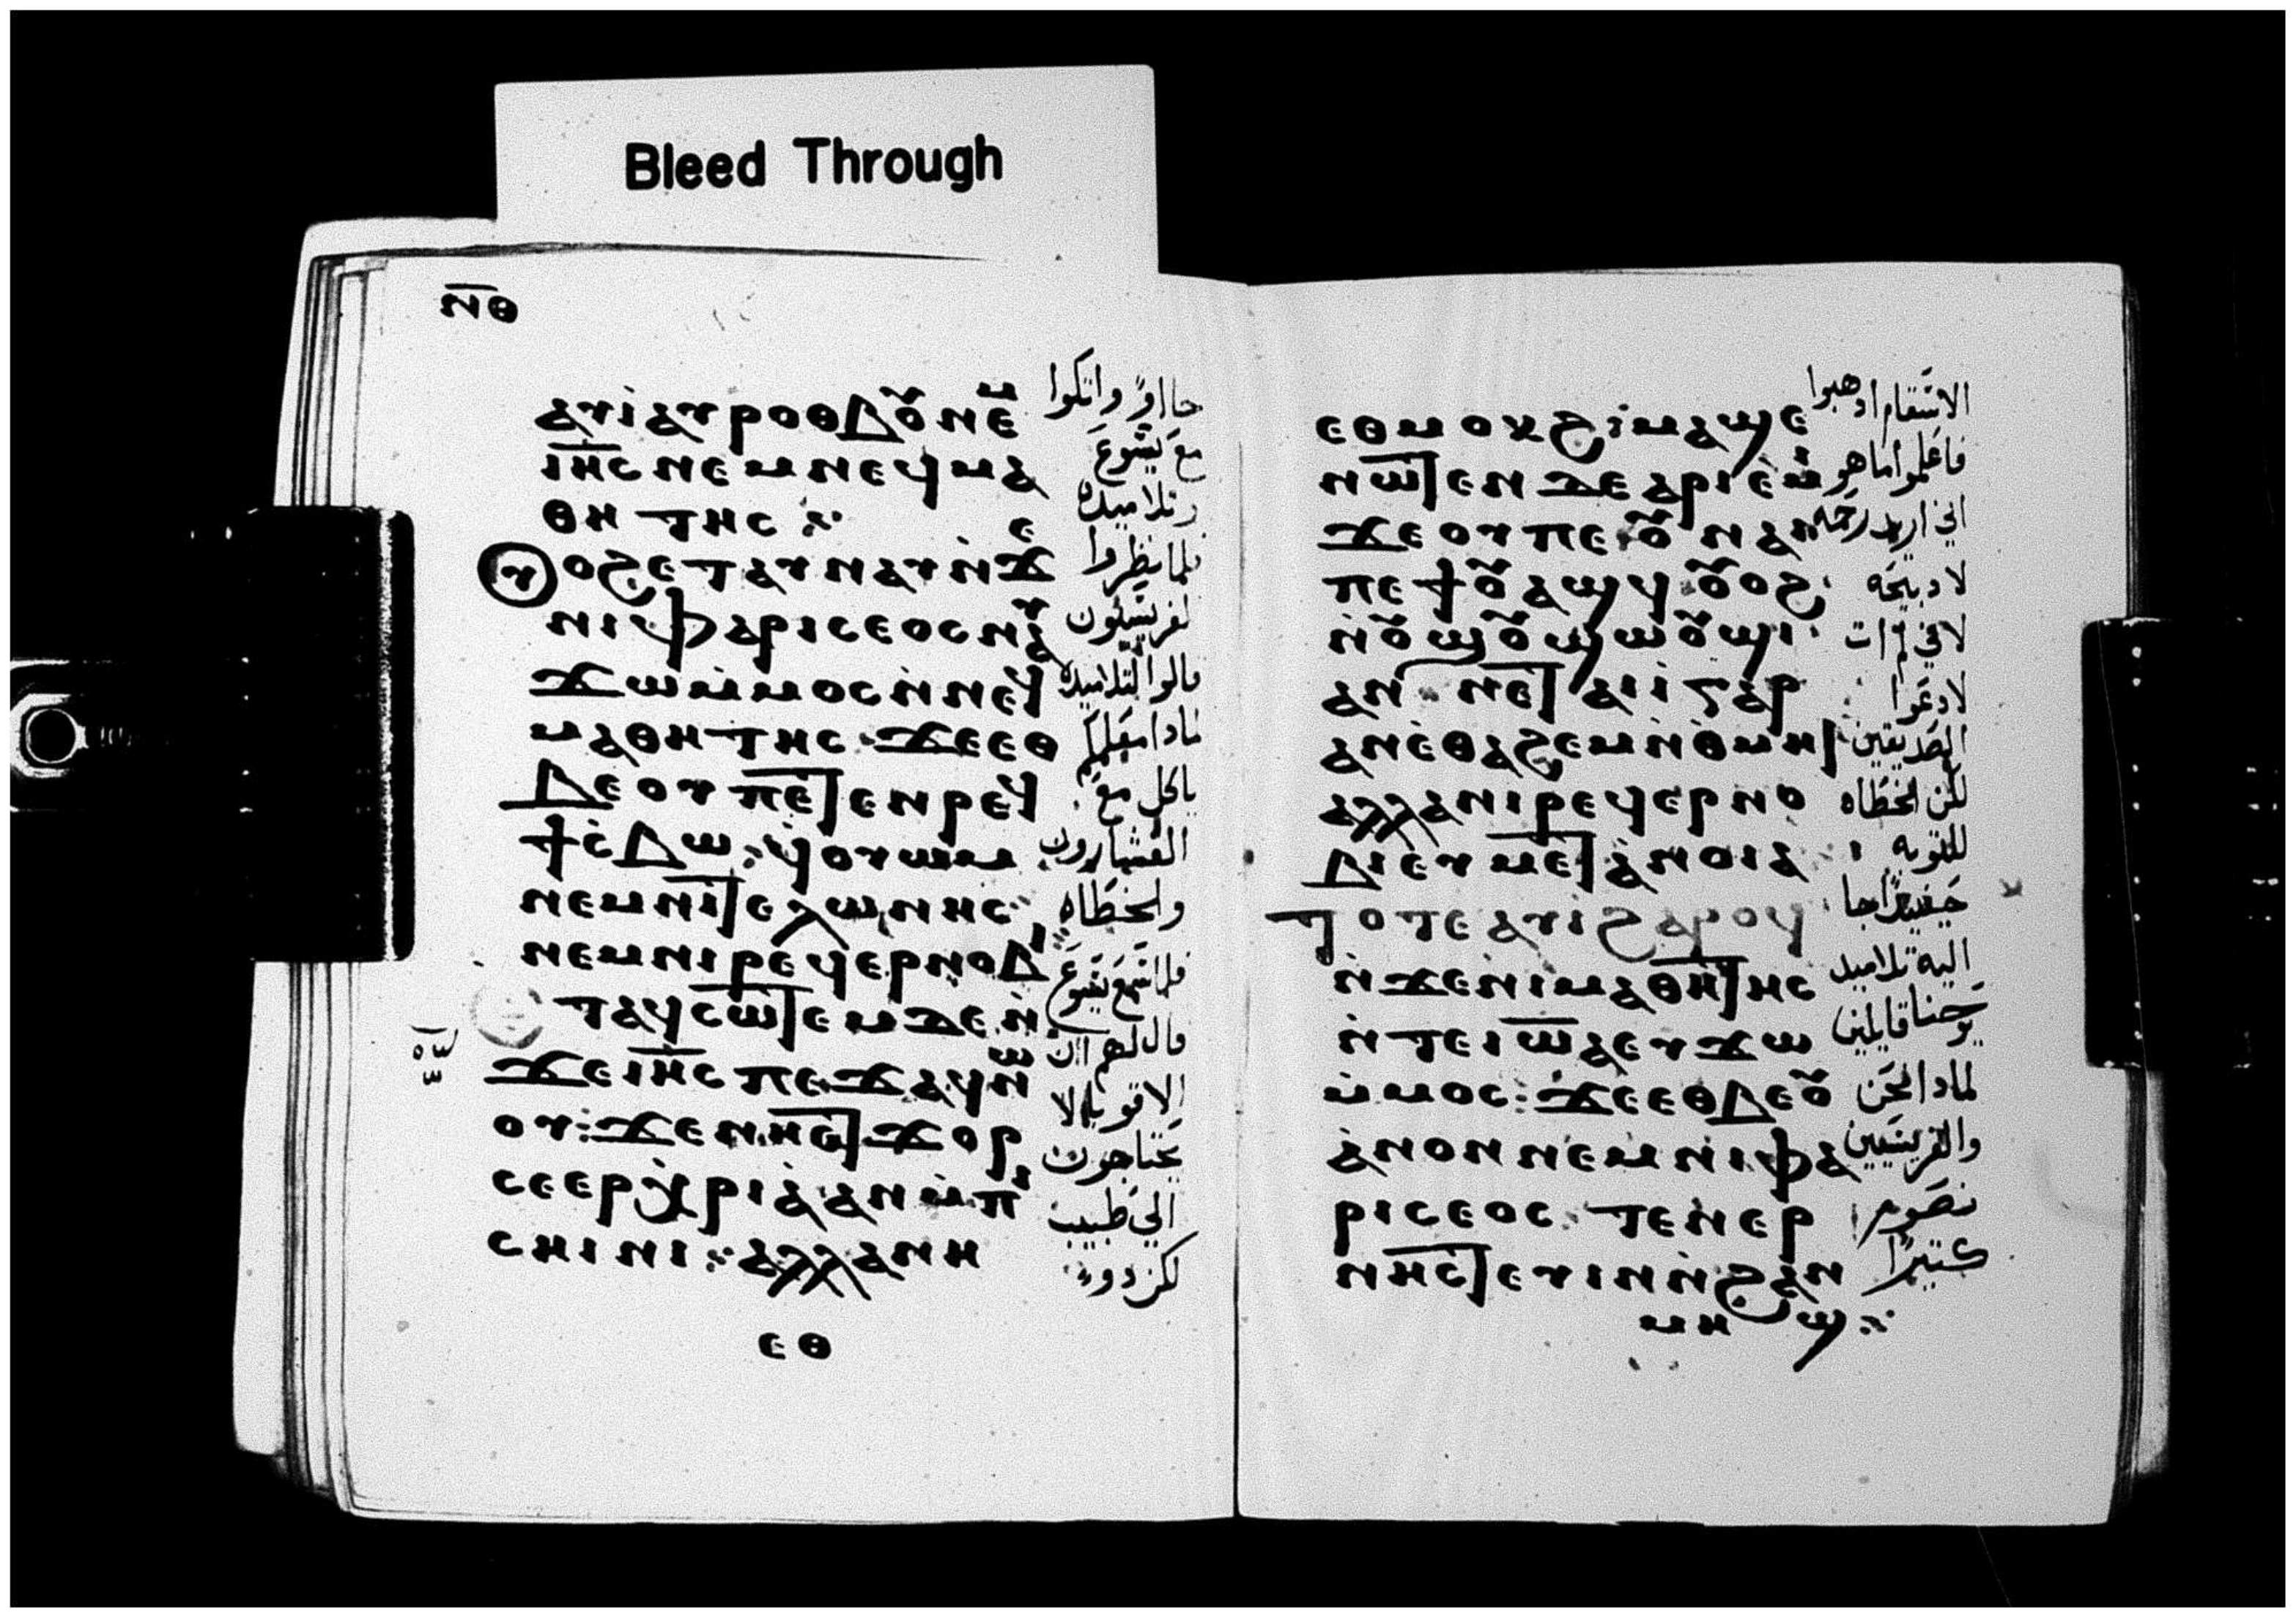 ⲛ̅ⲑ
ⲁⲩⲓ̀ⲁⲩⲣⲟⲑⲃⲟⲩⲛⲉⲙ
ⲓⲏ̅ⲥⲛⲉⲙⲛⲉϥⲙⲁ
ⲑⲏⲧⲏⲥ
ⲩⲟϩⲉⲧⲁⲩⲛⲁⲩⲛ̀ϫⲉ
ⲛⲓⲫⲁⲣⲓⲥⲉⲟⲥⲛⲁⲩ
ϫⲱⲙ̀ⲙⲟⲥⲛ̀ⲛⲉϥ
ⲙⲁⲑⲏⲧⲏⲥ ϫⲉⲉⲑ
ⲃⲉⲟⲩ ⲡⲉⲧⲉⲛⲣⲉϥ
ϯⲥ̀ⲃⲱ: ϥ̀ⲟⲩⲱⲙ
ⲛⲉⲙⲛⲓⲧⲉⲗⲱⲛⲏⲥ
ⲛⲉⲙⲛⲓⲣⲉϥⲉⲣⲛⲟⲃⲓ
ⲧⲁϥⲥⲱⲧⲉⲙⲇⲉⲛ̀
ϫⲉⲓⲏ̅ⲥ ⲡⲉϫⲁϥⲛⲱ
ⲟⲩ: ϫⲉⲛⲏⲉⲧϫⲟⲣ
ⲥⲉⲉⲣⲭ̀ⲣⲓⲁ̀ⲁⲛⲙ̀ⲡⲓ
ⲥⲏⲓⲛⲓ: ⲁⲗⲗⲁⲛⲏ
ⲉⲑ
جااوا واتكوا
مع يسوع
وتلاميده
فلما نظروا
لفريسيون
قالوا لتلاميده
لمادا معلمكم
ياكل مع
العشارون
والخطاه
فلما سمع يسوع
قال لهم ان
الاقويا لا
يحتاجون
الي طبيب
لكن دوي
ⲉⲑⲙⲟⲕϩ: ⲙⲁϣⲉ
ⲛⲱⲧⲉⲛ ⲇⲉⲁⲣⲓⲉ̀ⲙⲓ
ϫⲉⲟⲩ ⲡⲉ: ⲟⲩⲛⲁⲓ
ⲡⲉϯⲟⲩⲁϣϥ ⲟⲩⲟϩ
ⲛ̀ⲟⲩϣⲟⲩϣⲱⲟⲩϣⲓ
ⲁⲛ ⲛⲉⲧⲁⲓⲓ̀ⲅⲁⲣ
ⲁⲛⲉ̀ⲑⲁϩⲉⲙⲛ̀ⲑ̀ⲙⲏⲓ
ⲁⲗⲗⲁⲛⲓⲣⲉϥⲉⲣⲛⲟ
ⲃⲓⲉⲩⲙⲉⲧⲁⲛⲟⲓⲁ
ⲧⲟⲧⲉ ⲁⲩⲓ̀ϩⲁⲣⲟϥ
ⲛ̀ϫⲉⲛⲓⲙⲁⲑⲏⲧⲏⲥ
ⲛ̀ⲧⲉⲓⲱ̅ⲁ ⲉⲩϫⲱ
ⲙ̀ⲙⲟⲥ: ϫⲉⲉⲑⲃⲉⲟⲩ
ⲁ̀ⲛⲟⲛ ⲛⲉⲙⲛⲓⲫⲁ
ⲣⲓⲥⲉⲟⲥ ⲧⲉⲛⲉⲣ
ⲛⲏⲥⲧⲉⲩⲓⲛ ⲛ̀ϩⲁⲛ
ⲙⲏϣ
الاسقام ادهبوا
فاعلموا ما هو
اني اريد رحمه
لا دبيحه
لاني لم ات
لادعوا
الصديقين
لكن الخطاه
للتوبه
حينيدا جا
اليه تلاميد
يوحنا قايلين
لمادا نحن
والفريسيين
نصوم
كتيرا